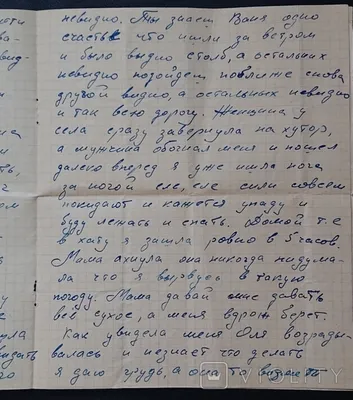 невидно. Ты знаеш Ваня одно
счастье что ишли за ветром
и было видно столб, а остальных
невидно позойдем поближе снова
другой видно, а остальных невидно
и так всю дорогу. Женщина у
села сразу завернула на хутор,
а мужчина обогнал меня и пошел
далеко вперед я уже ишла нога
за ногой еле, еле сили совсем
покидают и кажется упаду и
буду лежать и спать. Домой т.е
в хату я зашла ровно в 5 часов.
Мома ахнула она никогда нидума-
ла что я вырвусь в такую
погоду. Мома давай мне давать
все сухое, а меня вдрож берет.
Как увидела меня Оля возрады-
валась и незнает что делать
я даю грудь, а она то